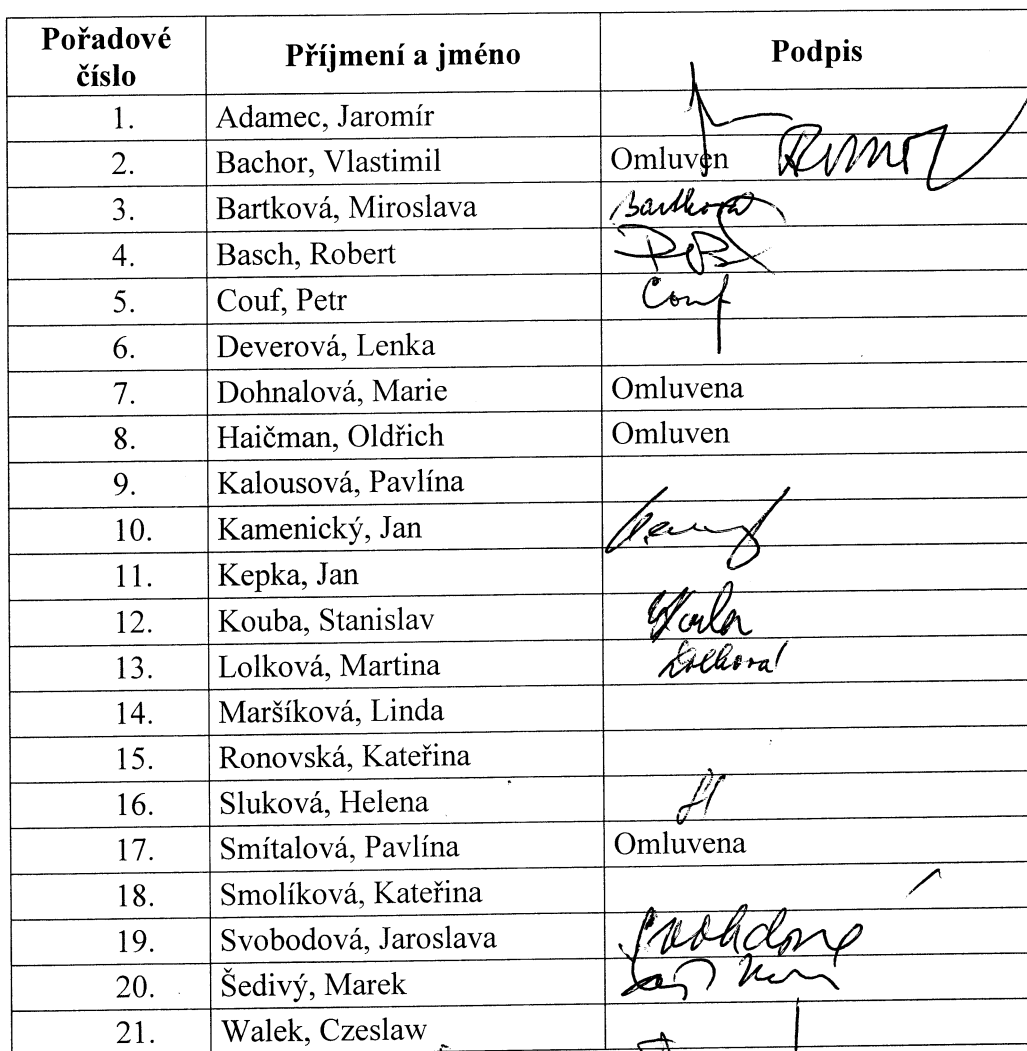 Pořadové číslo Příjmení a jméno Podpis
1. Adamec, Jaromír
2. Bachor, Vlastimil Omluven
3. Bartková, Miroslava Bartková
4. Basch, Robert
5. Couf, Petr Couf
6. Deverová, Lenka
7. Dohnalová, Marie Omluvena
8. Haičman, Oldřich Omluven
9. Kalousová, Pavlína
10. Kamenický, Jan
11. Kepka, Jan
12. Kouba, Stanislav
13. Lolková, Martina Lolková
14. Maršíková, Linda
15. Ronovská, Kateřina
16. Sluková, Helena
17. Smítalová, Pavlína Omluvena
18. Smolíková, Kateřina
19. Svobodová, Jaroslava
20. Šedivý, Marek
21. Walek, Czeslaw